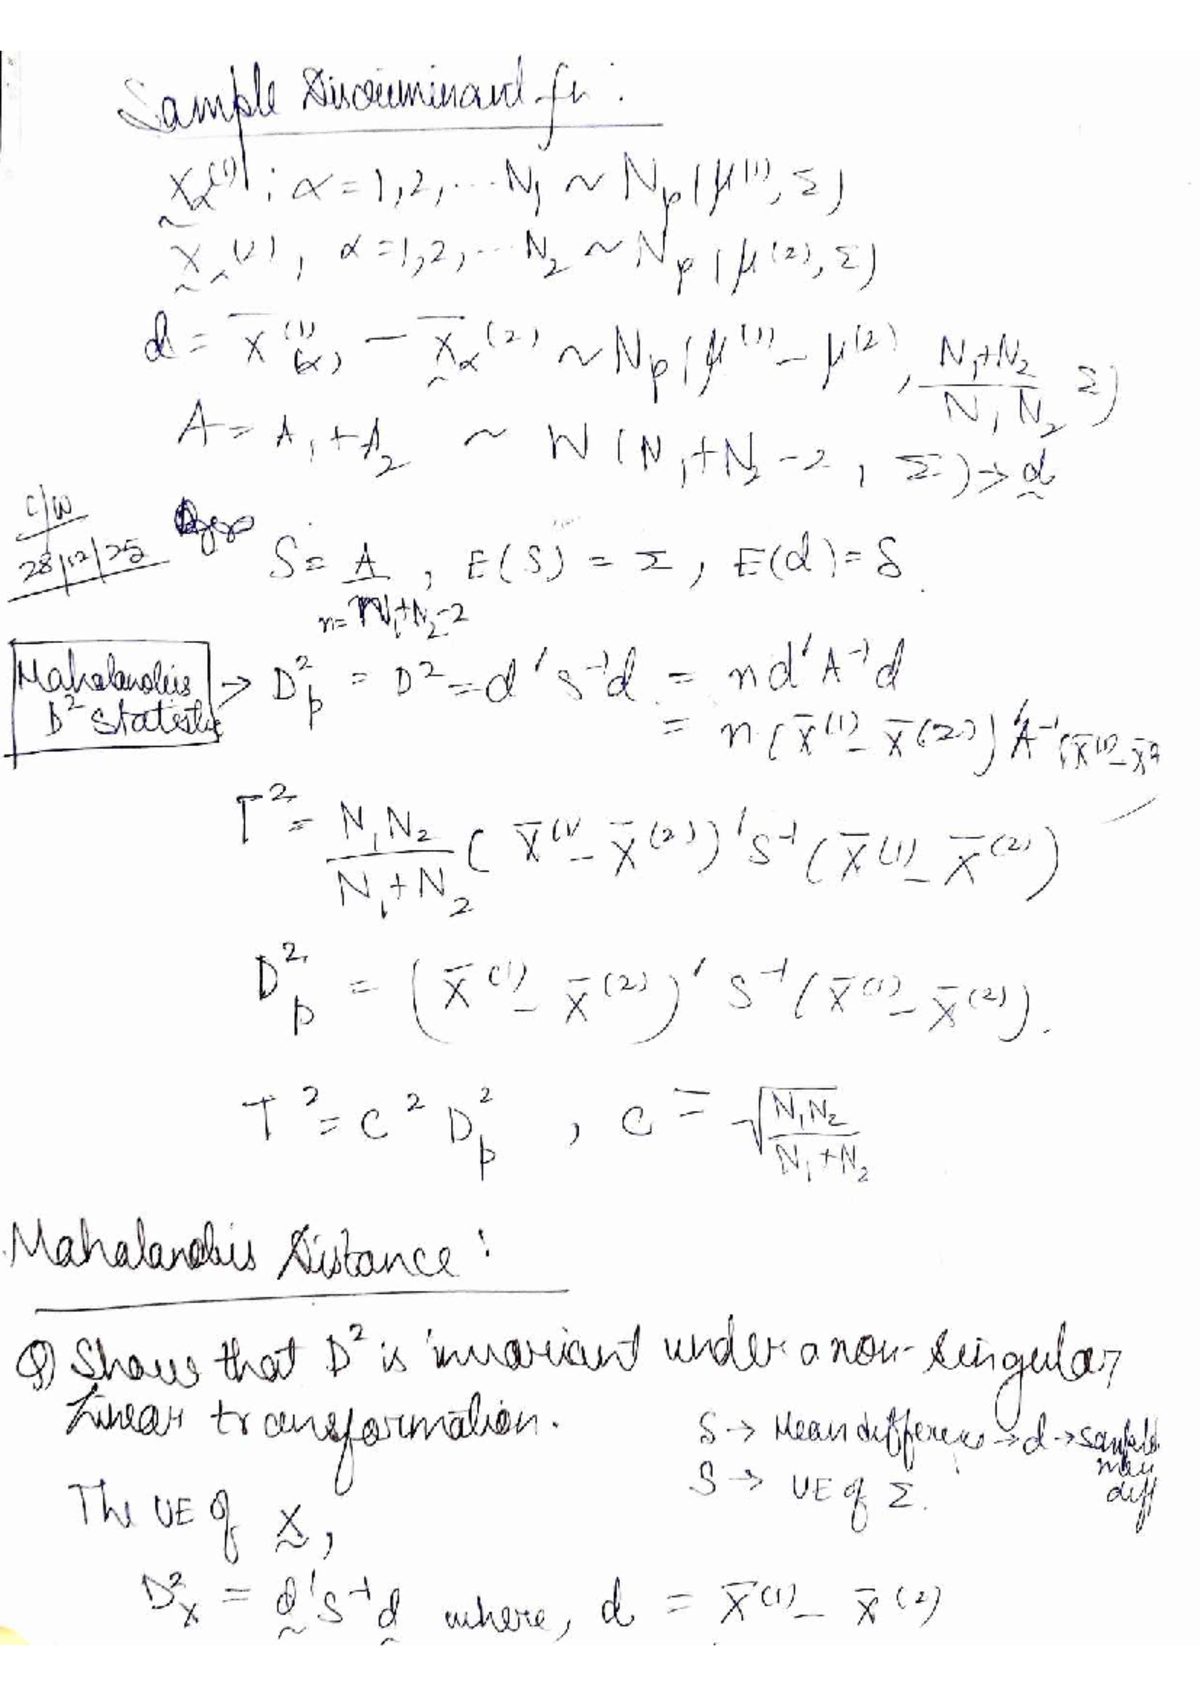 Sample Discriminant fn:
X_α^(1); α = 1,2,...N₁ ~ N_p(μ^(1), Σ)
X_α^(2), α = 1,2,...N₂ ~ N_p(μ^(2), Σ)
d = X̄_(α)^(1) - X̄_α^(2) ~ N_p(μ^(1) - μ^(2), (N₁+N₂)/(N₁N₂) Σ)
A = A₁ + A₂ ~ W(N₁+N₂-2, Σ) → d
C/W
28/12/25
S = A/n, E(S) = Σ, E(d) = δ.
n = N₁+N₂-2
Mahalanobis D² Statistic → D_p² = D² = d'S⁻¹d = nd'A⁻¹d
= n(X̄^(1) - X̄^(2))'A⁻¹(X̄^(1) - X̄^2
T² = N₁N₂/(N₁+N₂) (X̄^(1) - X̄^(2))'S⁻¹(X̄^(1) - X̄^(2))
D_p² = (X̄^(1) - X̄^(2))'S⁻¹(X̄^(1) - X̄^(2)).
T² = C² D_p², C = √(N₁N₂/(N₁+N₂))
Mahalanobis Distance:
Q) Show that D² is invariant under a non-singular
linear transformation.
δ → Mean difference → d → sample mean diff
S → UE of Σ.
The UE of X,
D_X² = d'S⁻¹d where, d = X̄^(1) - X̄^(2)